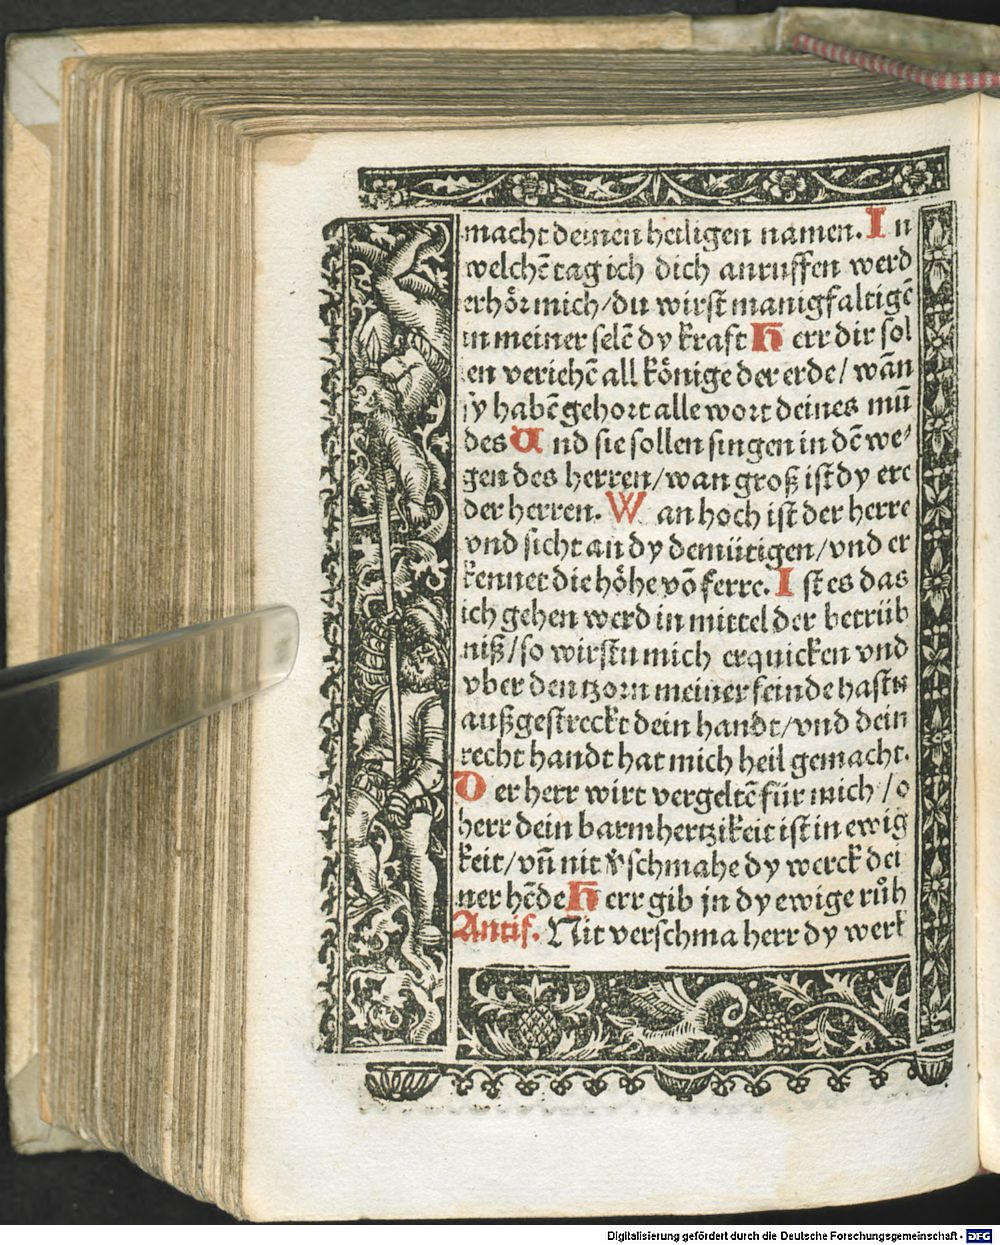 macht deinen heiligen namen. In
welchē tag ich dich anruffen werd
erhör mich/du wirst manigfaltigē
in meiner selē dy kraft Herr dir sol
en veriehē all könige der erde/ wān
sy habē gehort alle wort deines mū
des Und sie sollen singen in dē we⸗
gen des herren/wan groß ist dy ere
der herren. Wan hoch ist der herre
vnd sicht an dy demütigen/vnd er
kennet die höhe vō ferre. Ist es das
ich gehen werd in mittel der betrüb
niß/so wirstu mich erquicken vnd
vber den tzorn meiner feinde hastu
außgestreckt dein handt/vnd dein
recht handt hat mich heil gemacht.
Der herr wirt vergeltē für mich/o
herr dein barmhertzikeit ist in ewig
keit/vñ nit v̓schmahe dy werck dei
ner hēde Herr gib jn dy ewige růh
Antif. Nit verschma herr dy werk
Digitalisierung gefördert durch die Deutsche Forschungsgemeinschaft - DFG